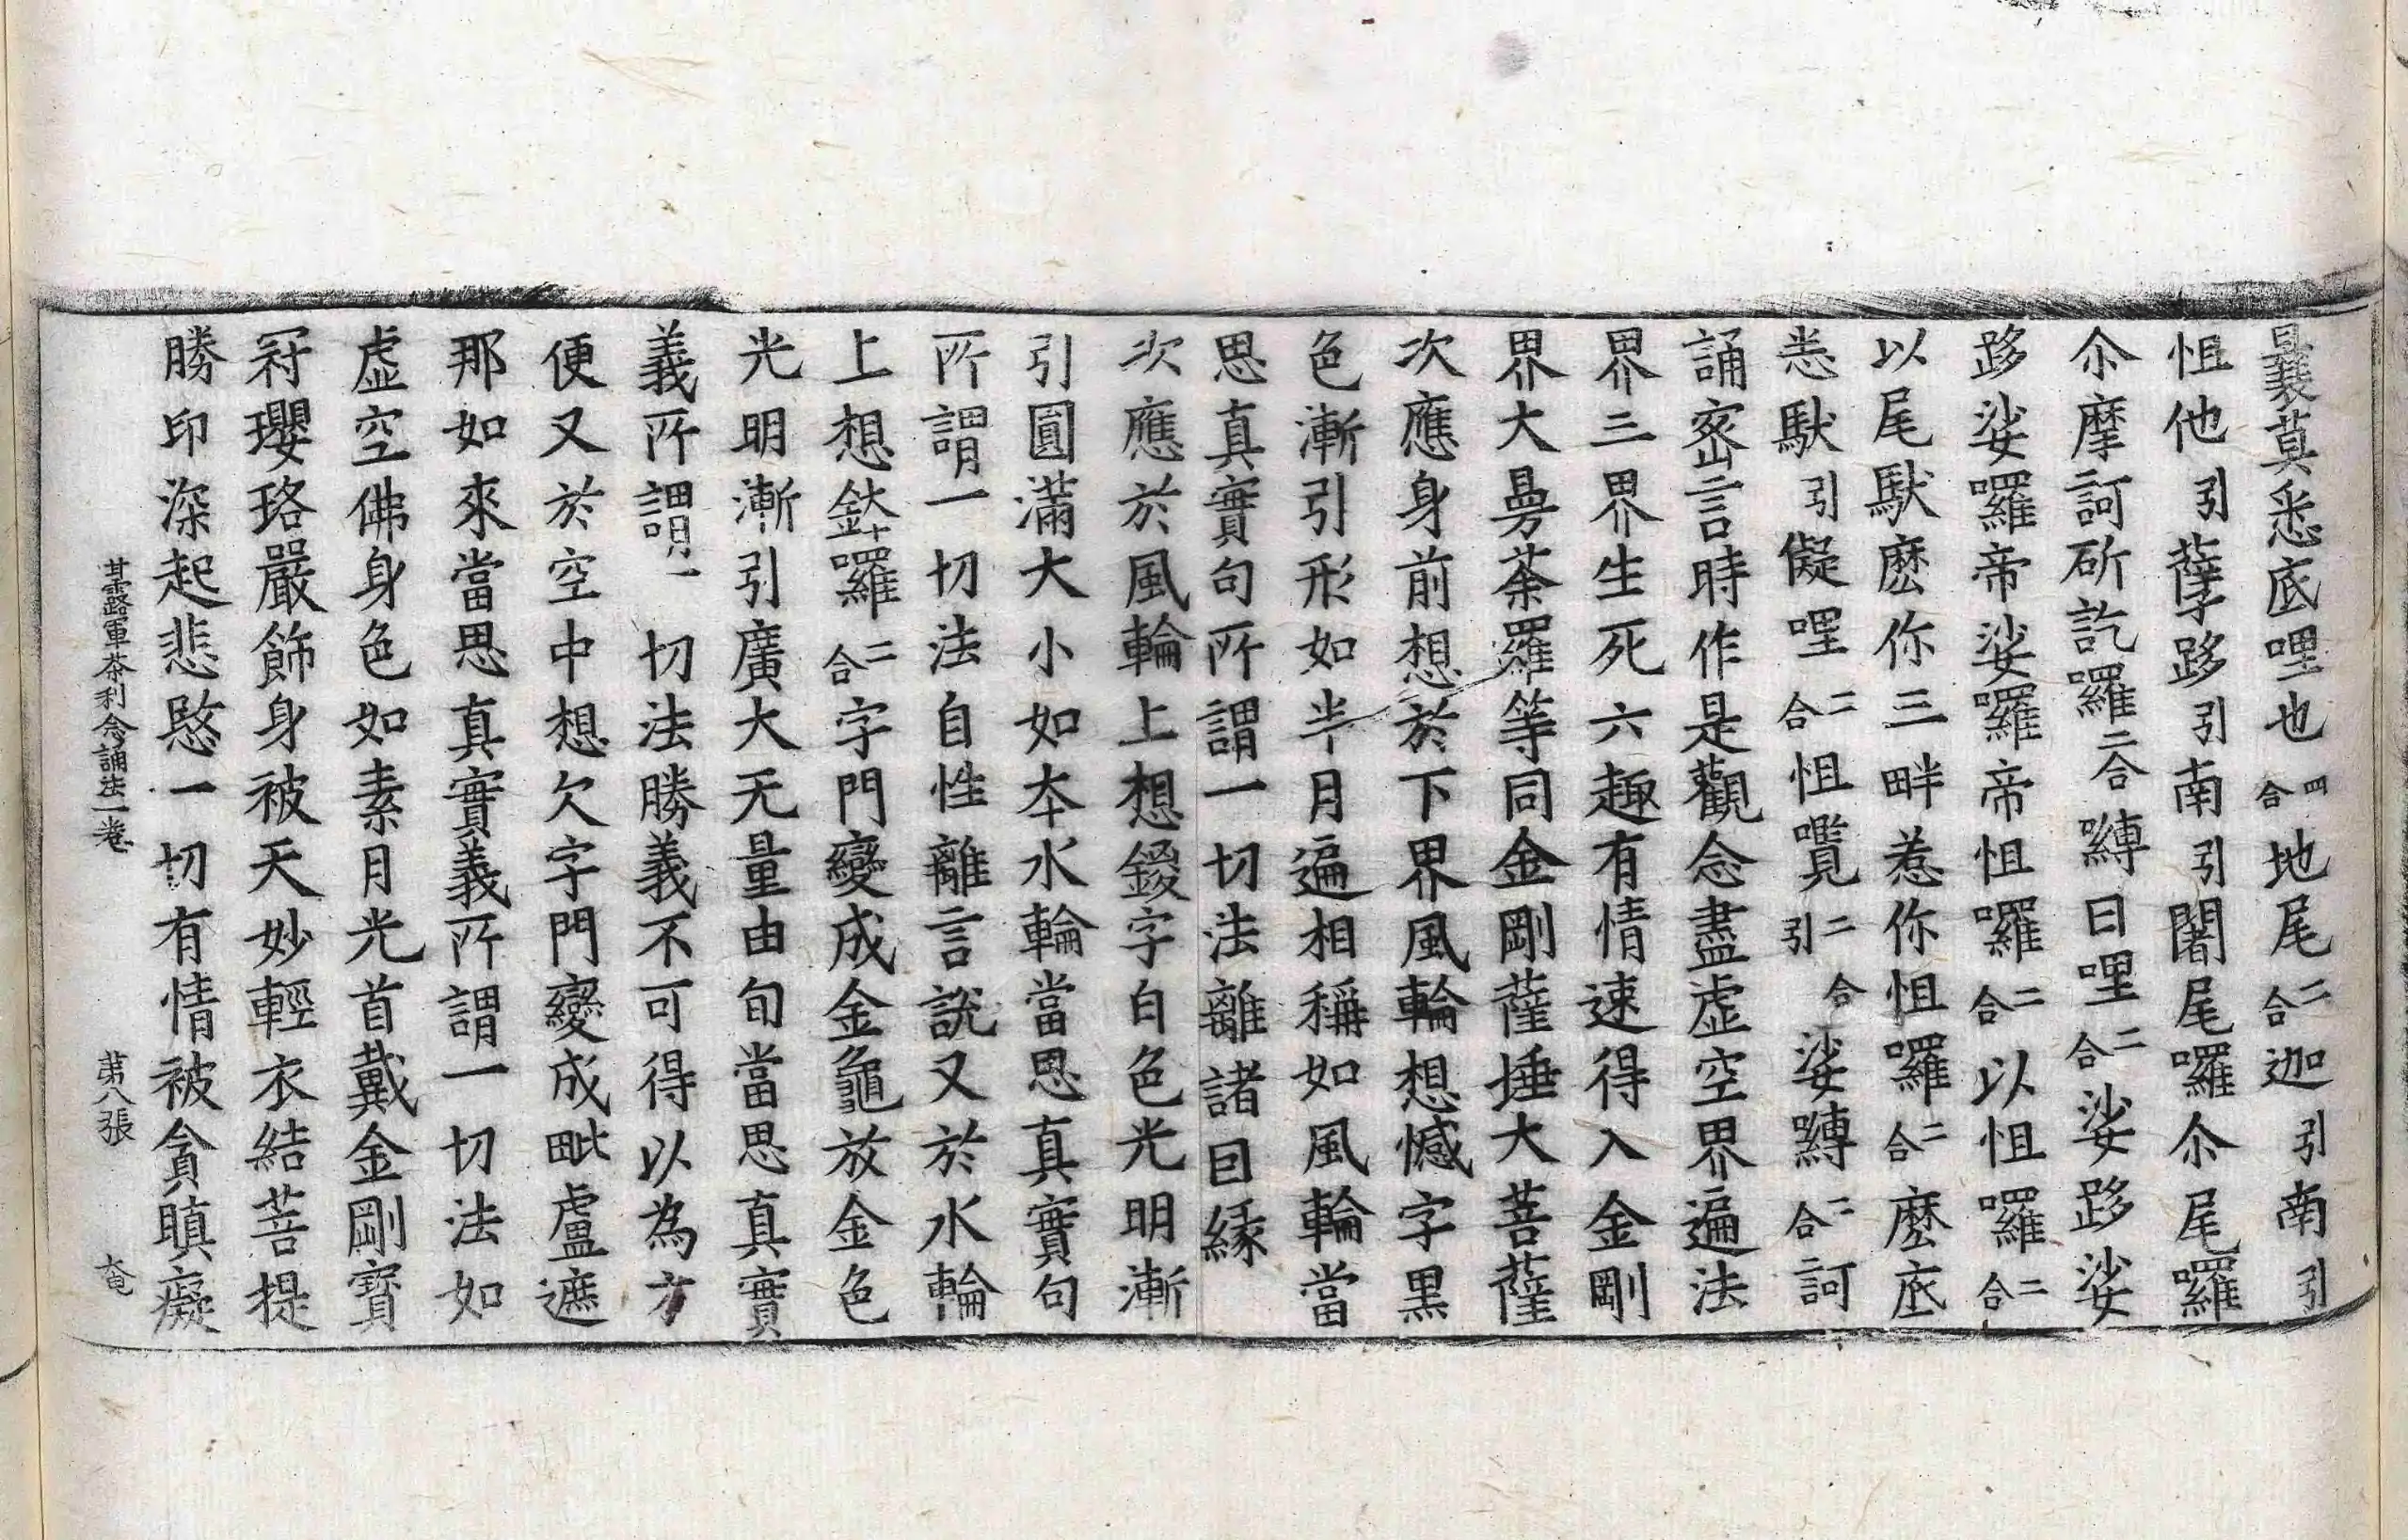 曩莫悉底哩也四合地尾二合迦引南引
怛他引孽路引南引闍尾囉尒尾囉
尒摩訶斫訖羅二合嚩曰哩二合娑路娑
路娑囉帝娑囉帝怛囉二合以怛囉二合
以尾馱麽你三畔惹你怛囉二合麽底
悉馱引儗哩二合怛囕二合引娑嚩二合訶
誦密言時作是觀念盡虛空界遍法
界三界生死六趣有情速得入金剛
界大曼荼羅等同金剛薩埵大菩薩
次應身前想於下界風輪想憾字黑
色漸引形如半月遍相稱如風輪當
思真實句所謂一切法離諸因緣
次應於風輪上想鑁字白色光明漸
引圓滿大小如本水輪當思真實句
所謂一切法自性離言說又於水輪
上想鉢囉二合字門變成金龜放金色
光明漸引廣大无量由旬當思真實
義所謂一切法勝義不可得以為方
便又於空中想欠字門變成毗盧遮
那如來當思真實義所謂一切法如
虛空佛身色如素月光首戴金剛寶
冠瓔珞嚴飾身被天妙輕衣結菩提
勝印深起悲愍一切有情被貪瞋癡
甘露軍茶利念誦法一卷 苐八張